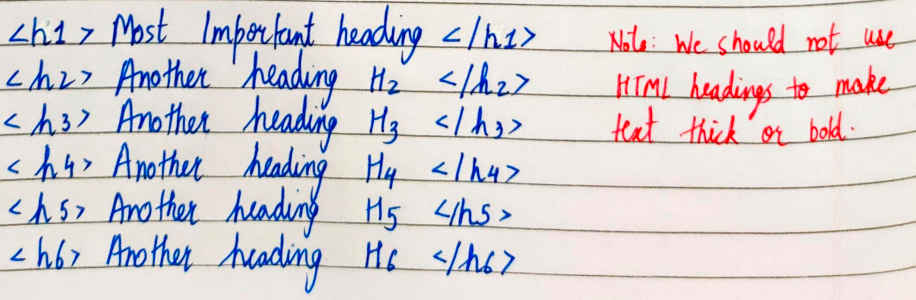 <h1> Most Important heading </h1>
<h2> Another heading H2 </h2>
<h3> Another heading H3 </h3>
<h4> Another heading H4 </h4>
<h5> Another heading H5 </h5>
<h6> Another heading H6 </h6>
Note: We should not use
HTML headings to make
text thick or bold.